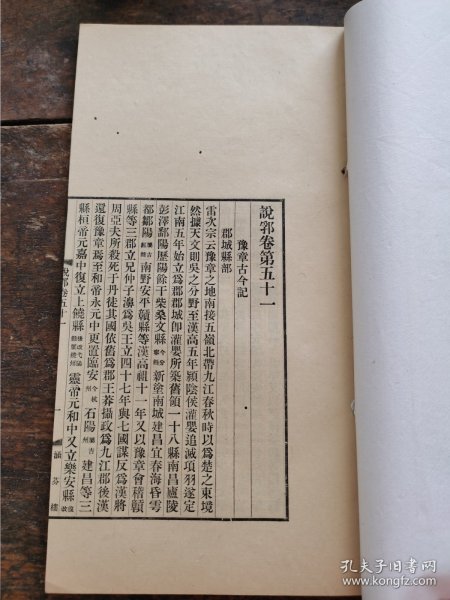 說郛卷第五十一
豫章古今記
郡城縣部
雷次宗云豫章之地南接五嶺北帶九江春秋時以為楚之東境
然據天文則吳之分野至漢高五年潁陰侯灌嬰追滅項羽遂定
江南五年始立為郡郡城即灌嬰所築舊領一十八縣南昌廬陵
彭澤鄱陽歷陵餘干柴桑艾縣新塗南城建昌宜春海昏雩
都鄡陽南野安平贛縣等漢高祖十一年又以豫章會稽
縣等三郡立兄仲子濞為吳王立四十七年與七國謀反為漢將
周亞夫所殺死于丹徒其國依舊為郡王莽攝政為九江郡後漢
還復豫章焉至和帝永元中更置臨安石陽建昌等三
縣桓帝元嘉中復立上饒縣靈帝元和中又立樂安縣
說郛卷五十一
一
涵芬樓
孔夫子旧书网
www.kongfz.com